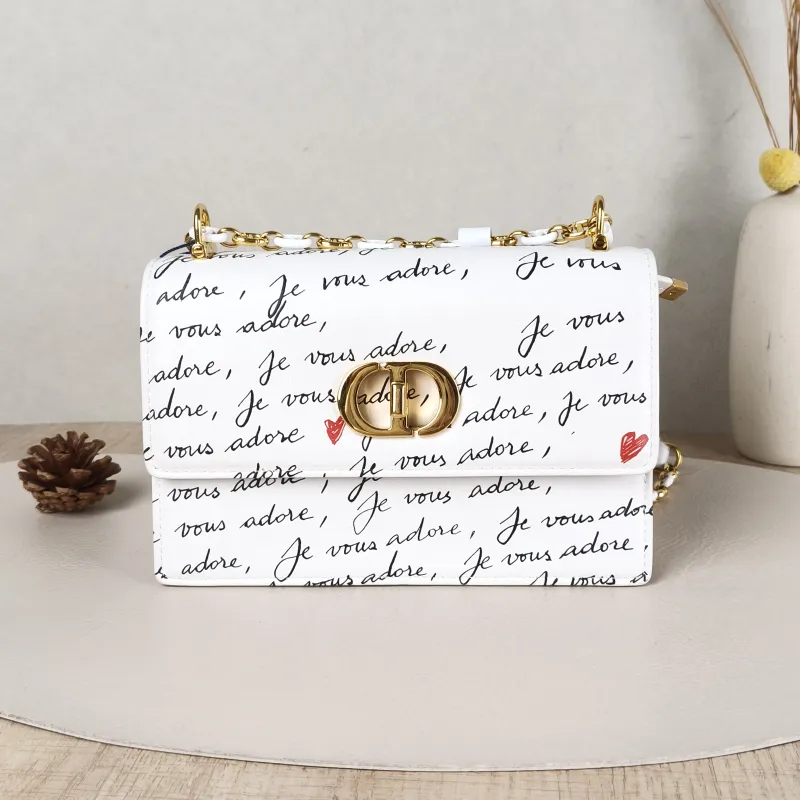 Je vous adore, Je vous
adore, Je vous adore,
e vous adore, Je vous
adore, Je vous adore,
Je vous adore,
adore, Je vous adore,
adore, Je vous
e vous adore
Je vous adore,
adore
vous adore, Je vous adore,
vous adore, Je vous adore,
adore, Je vous adore, Je vous adore
Je vous adore,
vous adore, Je vous
CD